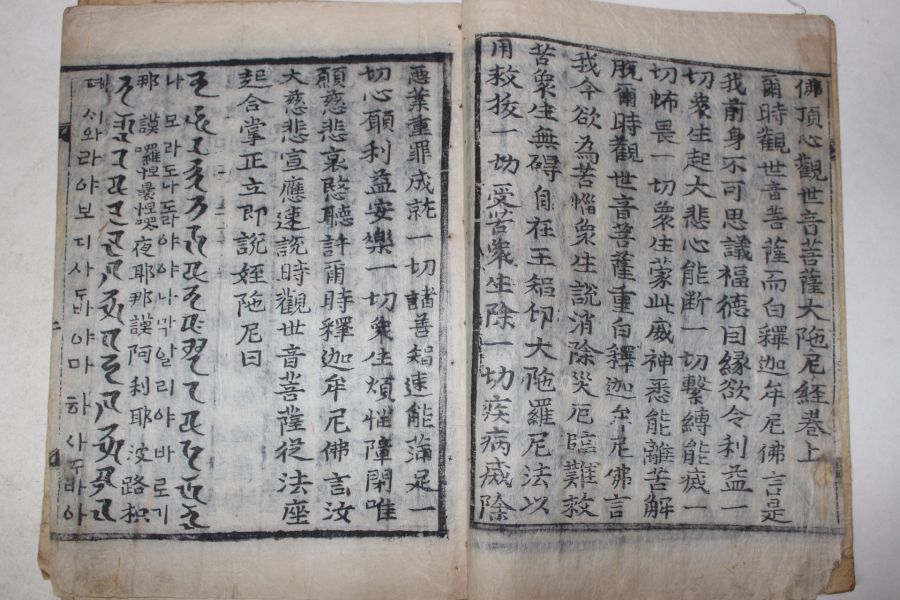 佛頂心觀世音菩薩大陁尼經卷上
爾時觀世音菩薩而白釋迦牟尼佛言是
我前身不可思議福德因緣欲令利益一
切衆生起大悲心能断一切繫縛能滅一
切怖畏一切衆生蒙此威神悉能離苦解
脫爾時觀世音菩薩重白釋迦牟尼佛言
我今欲為苦惱衆生說消除災厄臨難救
苦衆生無碍自在王智印大陁羅尼法以
用救拔一切受苦衆生除一切疾病滅除
惡業重罪成就一切諸善智速能滿足一
切心願利益安樂一切衆生煩惱障閉唯
願慈悲哀愍聽許爾時釋迦牟尼佛言汝
大慈悲宣應速說時觀世音菩薩從法座
起合掌正立即說姪陁尼曰
나모라도나도라야야나막알리야바로기
那謨囉怛曩怛夜耶那謨阿利耶波路枳
데시와라야보디사두바야마하사두바야